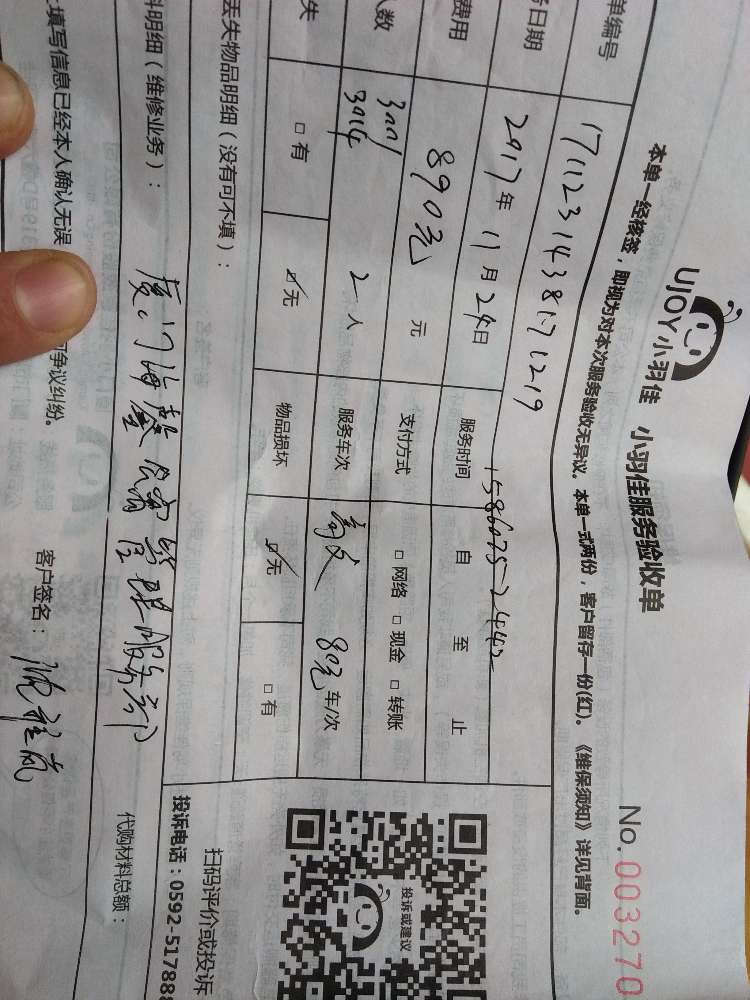 UJOY小羽佳 小羽佳服务验收单
No.003270
本单一经核签，即视为对本次服务验收无异议。本单一式两份，客户留存一份(红)。《维保须知》详见背面。
单编号
日期 2017年11月24日 服务时间 自 至 止
费用 890元 元 支付方式 □网络 □现金 □转账
人数 3001 3014 2人 服务车次 80元 车/次
失 □有 ☑无 物品损坏 ☑无 □有
丢失物品明细（没有可不填）：
料明细（维修业务）： 代购材料总额：
厦门海馨 管理服务部
填写信息已经本人确认无误 争议纠纷。 客户签名：
投诉或建议
扫码评价或投诉
投诉电话：0592-517888